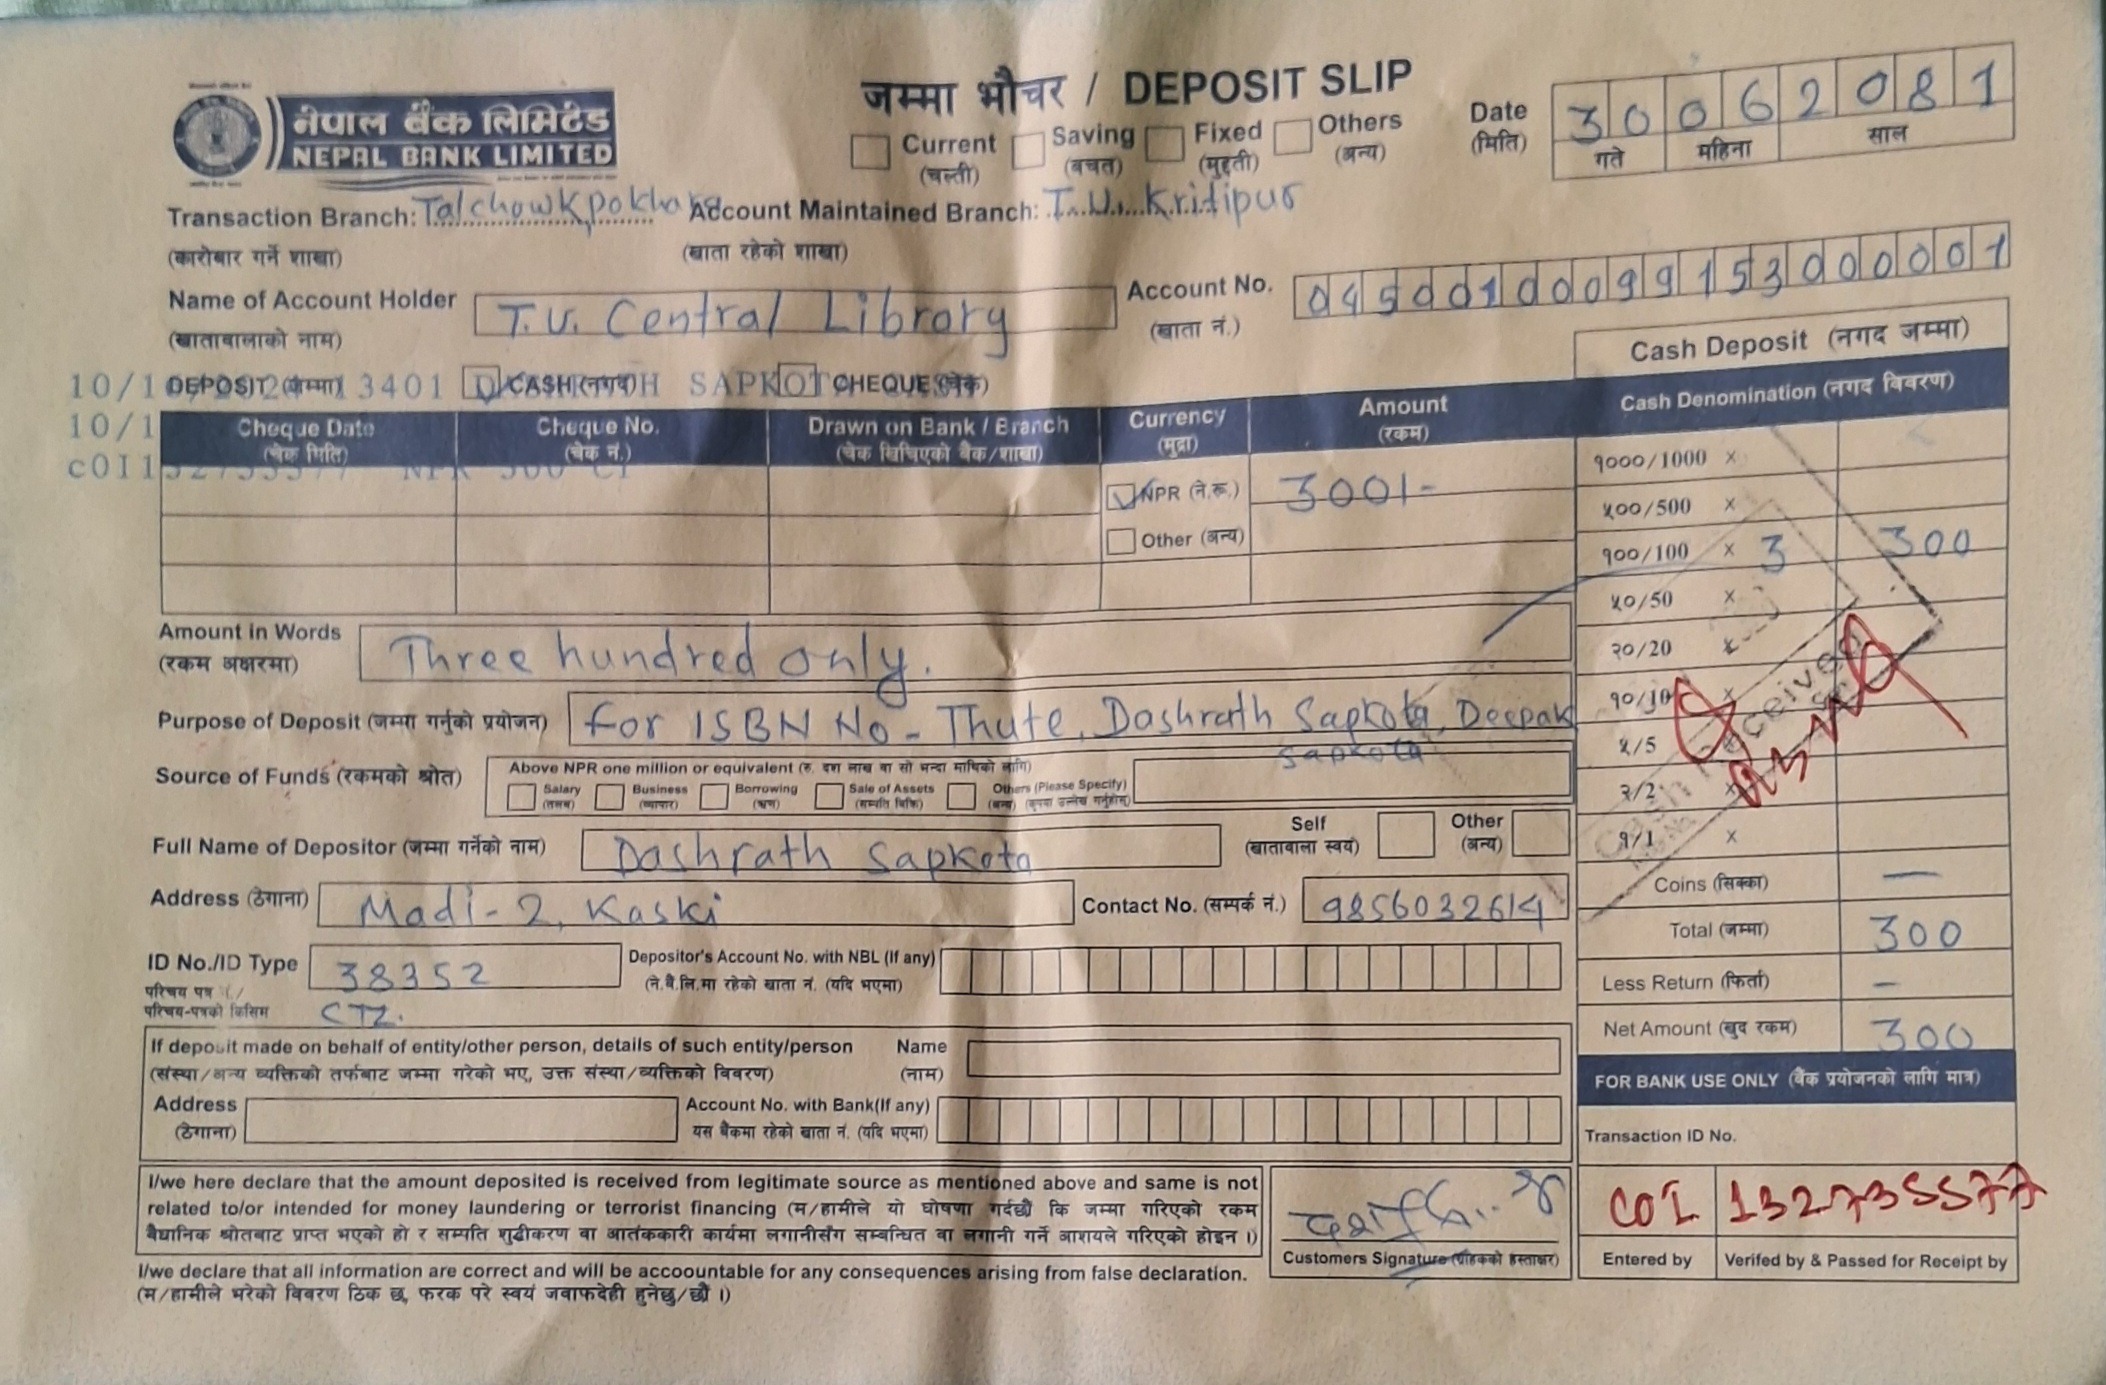 जम्मा भौचर / DEPOSIT SLIP
नेपाल बैंक लिमिटेड
NEPAL BANK LIMITED
Current Saving Fixed Others
(चल्ती) (बचत) (मुद्दती) (अन्य)
Date 30 06 2081
(मिति) गते महिना साल
Transaction Branch: Talchowk pokhara Account Maintained Branch: T.U. Kritipur
(कारोबार गर्ने शाखा) (खाता रहेको शाखा)
Name of Account Holder T.U. Central Library Account No. 04500100099153000001
(खातावालाको नाम) (खाता नं.)
DEPOSIT (जम्मा) CASH (नगद) CHEQUE (चेक)
Cheque Date Cheque No. Drawn on Bank / Branch Currency Amount
(चेक मिति) (चेक नं.) (चेक खिचिएको बैंक/शाखा) (मुद्रा) (रकम)
NPR (ने.रू.) 300/-
Other (अन्य)
Cash Deposit (नगद जम्मा)
Cash Denomination (नगद विवरण)
१०००/1000 x
५००/500 x
१००/100 x 3 300
५०/50 x
२०/20 x
१०/10 x
५/5
२/2 x
१/1 x
Coins (सिक्का) —
Total (जम्मा) 300
Less Return (फिर्ता) –
Net Amount (खुद रकम) 300
Amount in Words Three hundred only.
(रकम अक्षरमा)
Purpose of Deposit (जम्मा गर्नुको प्रयोजन) for ISBN No - Thute, Dashrath Sapkota, Deepak
Sapkota
Source of Funds (रकमको श्रोत) Above NPR one million or equivalent (रु. दश लाख वा सो भन्दा माथिको लागि)
Salary Business Borrowing Sale of Assets Others (Please Specify)
(तलब) (व्यापार) (ऋण) (सम्पति बिक्रि) (अन्य) (कृपया उल्लेख गर्नुहोस्)
Full Name of Depositor (जम्मा गर्नेको नाम) Dashrath Sapkota Self Other
(खातावाला स्वयं) (अन्य)
Address (ठेगाना) Madi-2, Kaski Contact No. (सम्पर्क नं.) 9856032614
ID No./ID Type 38352 Depositor's Account No. with NBL (If any)
परिचय पत्र (ने.बै.लि.मा रहेको खाता नं. (यदि भएमा)
परिचय-पत्रको किसिम CTZ.
If deposit made on behalf of entity/other person, details of such entity/person Name
(संस्था/अन्य व्यक्तिको तर्फबाट जम्मा गरेको भए, उक्त संस्था/व्यक्तिको विवरण) (नाम)
Address Account No. with Bank(If any)
(ठेगाना) यस बैंकमा रहेको खाता नं. (यदि भएमा)
FOR BANK USE ONLY (बैंक प्रयोजनको लागि मात्र)
Transaction ID No.
COI 132735577
Entered by Verifed by & Passed for Receipt by
I/we here declare that the amount deposited is received from legitimate source as mentioned above and same is not
related to/or intended for money laundering or terrorist financing (म/हामीले यो घोषणा गर्दछौं कि जम्मा गरिएको रकम
बैधानिक श्रोतबाट प्राप्त भएको हो र सम्पति शुद्धीकरण वा आतंककारी कार्यमा लगानीसँग सम्बन्धित वा लगानी गर्ने आशयले गरिएको होइन ।)
Customers Signature (ग्राहकको हस्ताक्षर)
I/we declare that all information are correct and will be accoountable for any consequences arising from false declaration.
(म/हामीले भरेको विवरण ठिक छ, फरक परे स्वयं जवाफदेही हुनेछु/छौं ।)